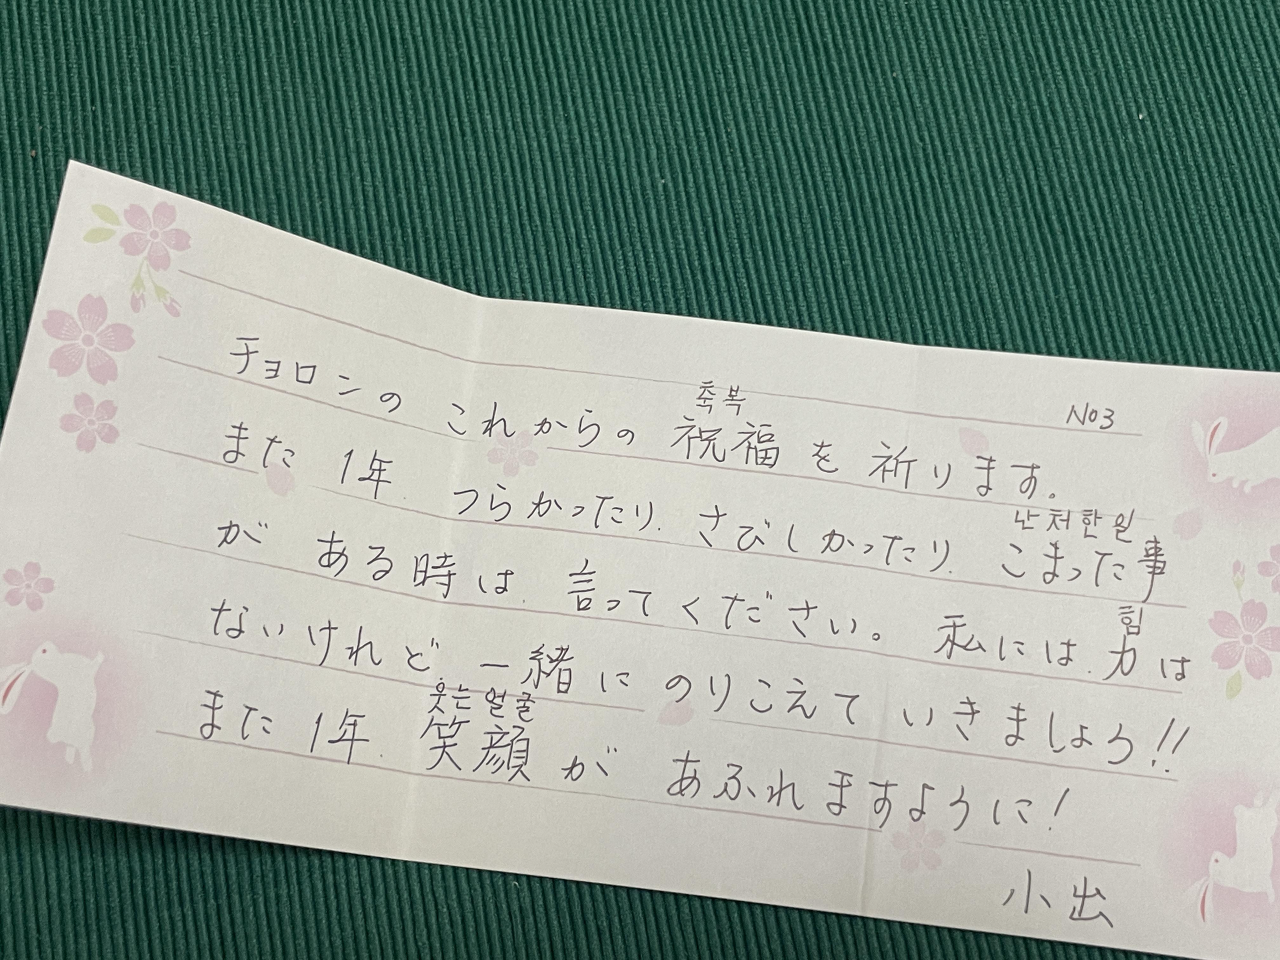 No3
축복
チョロンの これからの 祝福を 祈ります。
また 1年、つらかったり、さびしかったり、こまった事
난처한일
が ある時は、言ってください。私には、力は
힘
ないけれど、一緒に のりこえて いきましょう!!
웃는얼굴
また1年、笑顔が あふれますように!
小出